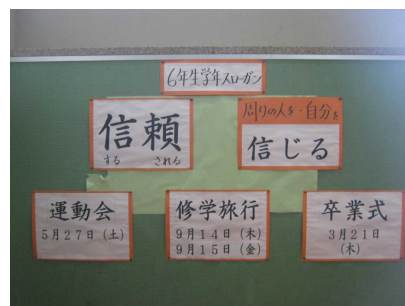 6年生学年スローガン
信頼
する される
周りの人を・自分を
信じる
運動会
5月27日（土）
修学旅行
9月14日（木）
9月15日（金）
卒業式
3月21日
（木）